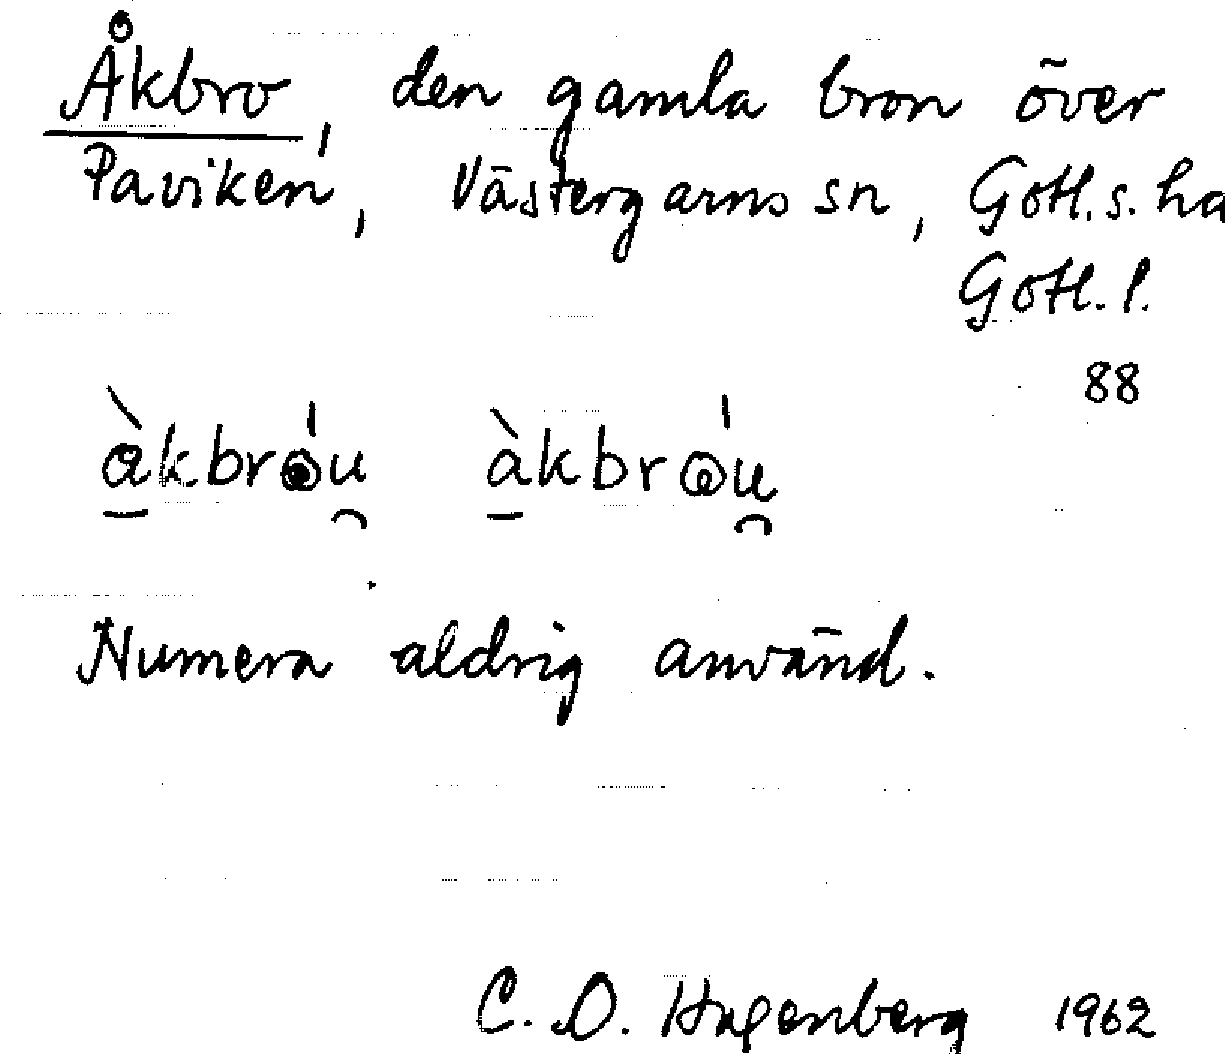 Åkbro, den gamla bron över
Paviken, Västergarns sn, Gotl.s. ha
Gotl. l.
88
àkbrǫ́u̯ àkbrǫ́u̯
Numera aldrig använd.
C. O. Hagenberg 1962